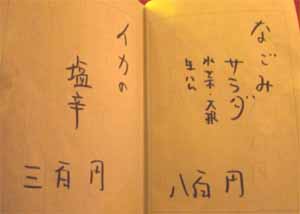 なごみ
サラダ
水菜・大根
生ハム
八百円
イカの
塩辛
三百円